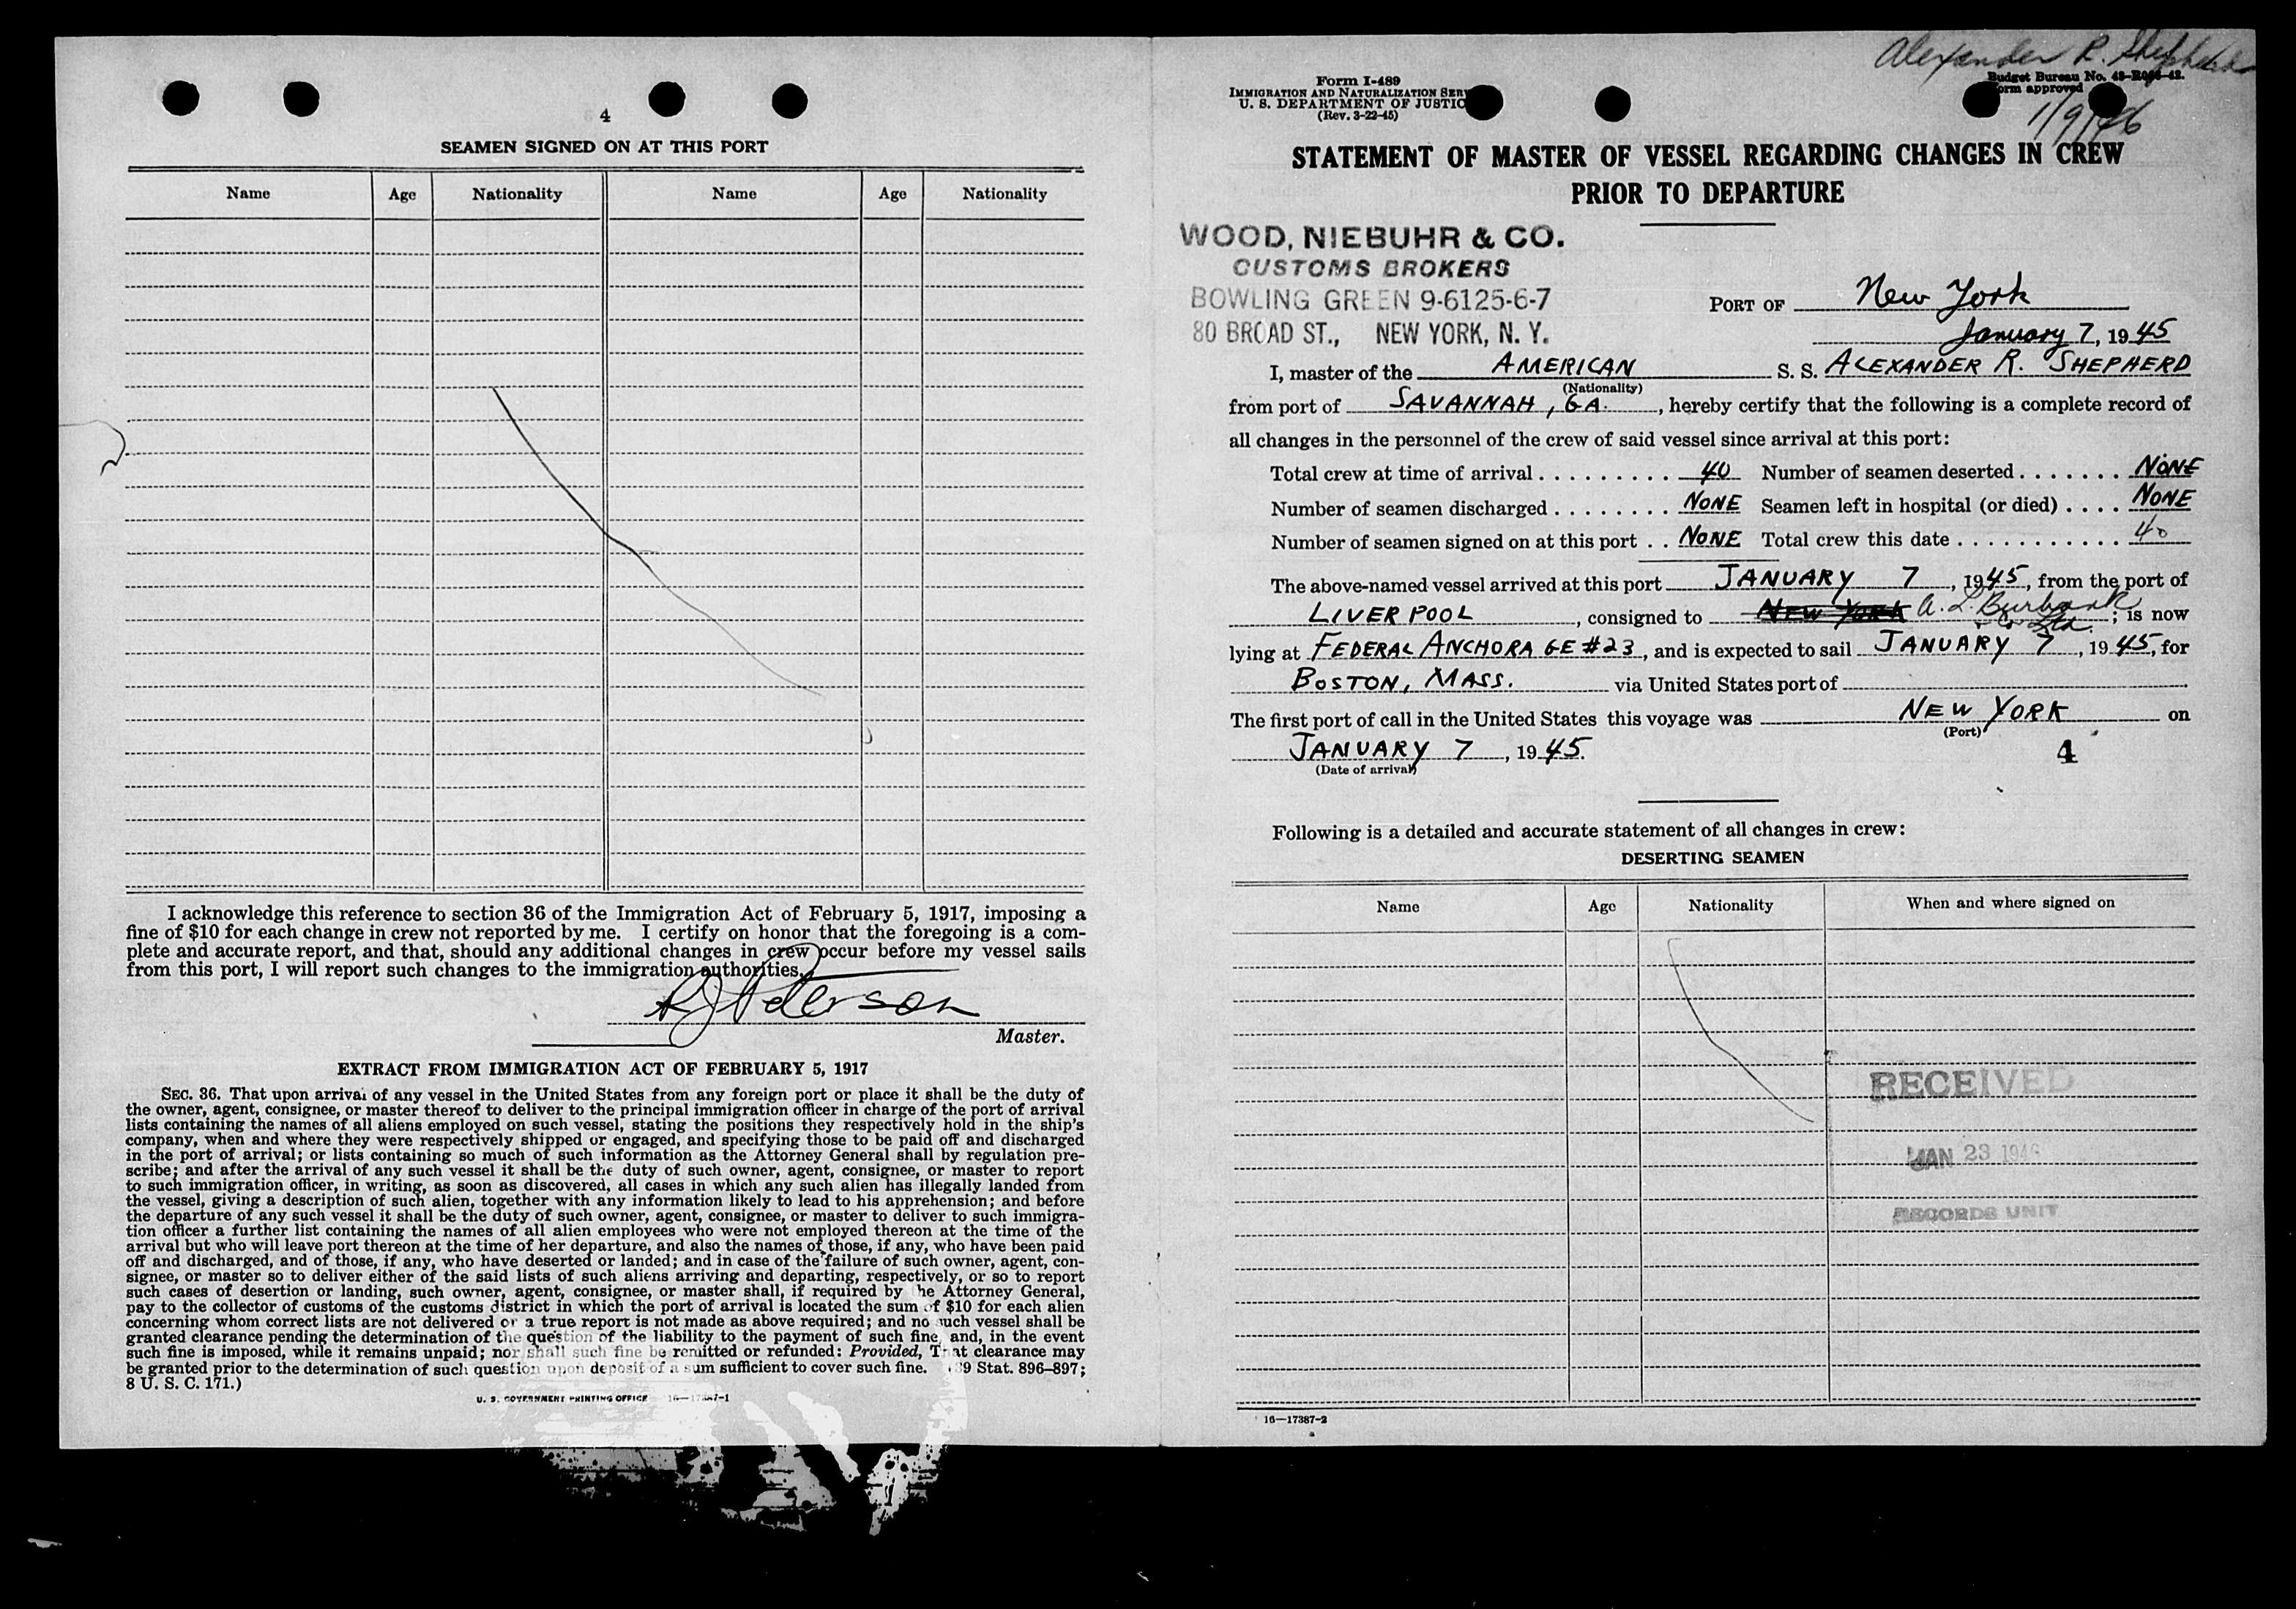 4
SEAMEN SIGNED ON AT THIS PORT
Name Age Nationality Name Age Nationality
I acknowledge this reference to section 36 of the Immigration Act of February 5, 1917, imposing a
fine of $10 for each change in crew not reported by me. I certify on honor that the foregoing is a com-
plete and accurate report, and that, should any additional changes in crew occur before my vessel sails
from this port, I will report such changes to the immigration authorities.
Peterson
Master.
EXTRACT FROM IMMIGRATION ACT OF FEBRUARY 5, 1917
SEC. 36. That upon arrival of any vessel in the United States from any foreign port or place it shall be the duty of
the owner, agent, consignee, or master thereof to deliver to the principal immigration officer in charge of the port of arrival
lists containing the names of all aliens employed on such vessel, stating the positions they respectively hold in the ship's
company, when and where they were respectively shipped or engaged, and specifying those to be paid off and discharged
in the port of arrival; or lists containing so much of such information as the Attorney General shall by regulation pre-
scribe; and after the arrival of any such vessel it shall be the duty of such owner, agent, consignee, or master to report
to such immigration officer, in writing, as soon as discovered, all cases in which any such alien has illegally landed from
the vessel, giving a description of such alien, together with any information likely to lead to his apprehension; and before
the departure of any such vessel it shall be the duty of such owner, agent, consignee, or master to deliver to such immigra-
tion officer a further list containing the names of all alien employees who were not employed thereon at the time of the
arrival but who will leave port thereon at the time of her departure, and also the names of those, if any, who have been paid
off and discharged, and of those, if any, who have deserted or landed; and in case of the failure of such owner, agent, con-
signee, or master so to deliver either of the said lists of such aliens arriving and departing, respectively, or so to report
such cases of desertion or landing, such owner, agent, consignee, or master shall, if required by the Attorney General,
pay to the collector of customs of the customs district in which the port of arrival is located the sum of $10 for each alien
concerning whom correct lists are not delivered or a true report is not made as above required; and no such vessel shall be
granted clearance pending the determination of the question of the liability to the payment of such fine, and, in the event
such fine is imposed, while it remains unpaid; nor shall such fine be remitted or refunded: Provided, That clearance may
be granted prior to the determination of such question upon deposit of a sum sufficient to cover such fine. (39 Stat. 896–897;
8 U. S. C. 171.)
U. S. GOVERNMENT PRINTING OFFICE 16—17387-1
Alexander R. Shepherd
Form I-489
IMMIGRATION AND NATURALIZATION SERV
U. S. DEPARTMENT OF JUSTIC
(Rev. 3-22-45)
Budget Bureau No.
Form approved
1/9/46
STATEMENT OF MASTER OF VESSEL REGARDING CHANGES IN CREW
PRIOR TO DEPARTURE
WOOD, NIEBUHR & CO.
CUSTOMS BROKERS
BOWLING GREEN 9-6125-6-7
80 BROAD ST., NEW YORK, N. Y.
PORT OF New York
January 7, 1945
I, master of the AMERICAN S. S. ALEXANDER R. SHEPHERD
(Nationality)
from port of SAVANNAH, GA., hereby certify that the following is a complete record of
all changes in the personnel of the crew of said vessel since arrival at this port:
Total crew at time of arrival . . . . . . . . . . 40 Number of seamen deserted . . . . . . . NONE
Number of seamen discharged . . . . . . . . NONE Seamen left in hospital (or died) . . . . NONE
Number of seamen signed on at this port . . NONE Total crew this date . . . . . . . . . . . . 40
The above-named vessel arrived at this port JANUARY 7, 1945, from the port of
LIVERPOOL, consigned to NEW YORK A. L. Burbank & Co Ltd.; is now
lying at FEDERAL ANCHORAGE #23, and is expected to sail JANUARY 7, 1945, for
BOSTON, MASS. via United States port of
The first port of call in the United States this voyage was NEW YORK on
(Port)
JANUARY 7, 1945.
(Date of arrival)
4
Following is a detailed and accurate statement of all changes in crew:
DESERTING SEAMEN
Name Age Nationality When and where signed on
RECEIVED
JAN 23 1946
RECORDS UNIT
16—17387-2